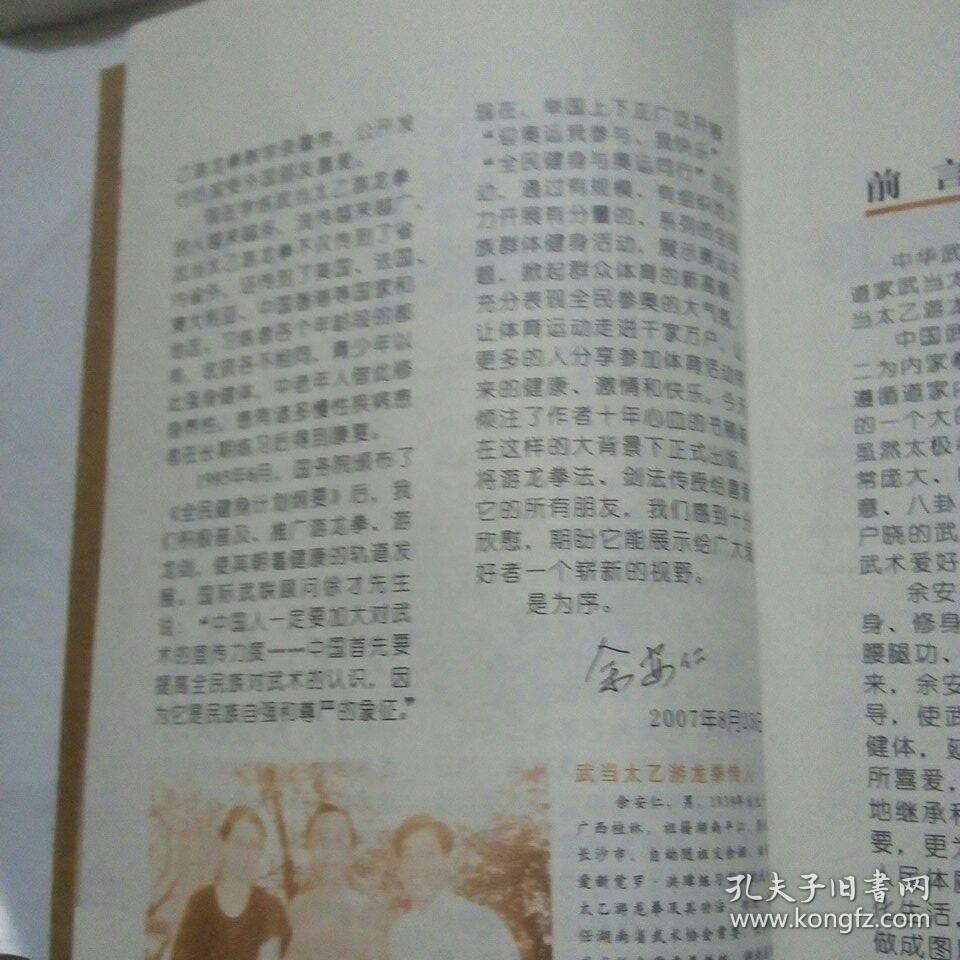 乙游龙拳教学录像带，公开发
行后深受外国朋友喜爱。
现在学练武当太乙游龙拳
的人越来越多，流传越来越广，
武当太乙游龙拳不仅传到了省
内省外，还传到了英国、法国、
澳大利亚、中国香港等国家和
地区。习练者各个年龄段的都
有，收获各不相同，青少年以
此强身健体，中老年人借此修
身养性，患有诸多慢性疾病患
者在长期练习后得到康复。
1995年6月，国务院颁布了
《全民健身计划纲要》后，我
们积极普及、推广游龙拳、游
龙剑，使其朝着健康的轨道发
展。国际武联顾问徐才先生
说：“中国人一定要加大对武
术的宣传力度——中国首先要
提高全民族对武术的认识，因
为它是民族自强和尊严的象征。”
现在，举国上下正广泛开展
“迎奥运我参与、我快乐”
“全民健身与奥运同行”的
动，通过有规模、有组织地
力开展有分量的、系列的全
族群体健身活动，展示奥运
题，掀起群众体育的新高潮，
充分表现全民参奥的大气氛，
让体育运动走进千家万户，
更多的人分享参加体育活动
来的健康、激情和快乐。今天
倾注了作者十年心血的书稿
在这样的大背景下正式出版，
将游龙拳法、剑法传授给喜爱
它的所有朋友，我们感到十分
欣慰，期盼它能展示给广大爱
好者一个崭新的视野。
是为序。
余安仁
2007年8月25日
武当太乙游龙拳传人
余安仁，男，1939年出生
广西桂林，祖籍湖南平江，
长沙市。自幼随祖父余
爱新觉罗·洪璋练习
太乙游龙拳及其功法
任湖南省武术协会常委
前言
中华武
道家武当太
当太乙游龙
中国武
二为内家拳
遵循道家内
的一个大的
虽然太极拳
常庞大、
意、八卦
户晓的武
武术爱好
余安
身、修身
腰腿功、
来，余安
导，使武
健体，延
所喜爱，
地继承和
要，更为
人民体
化生活，
做成图
孔夫子旧书网
www.kongfz.com